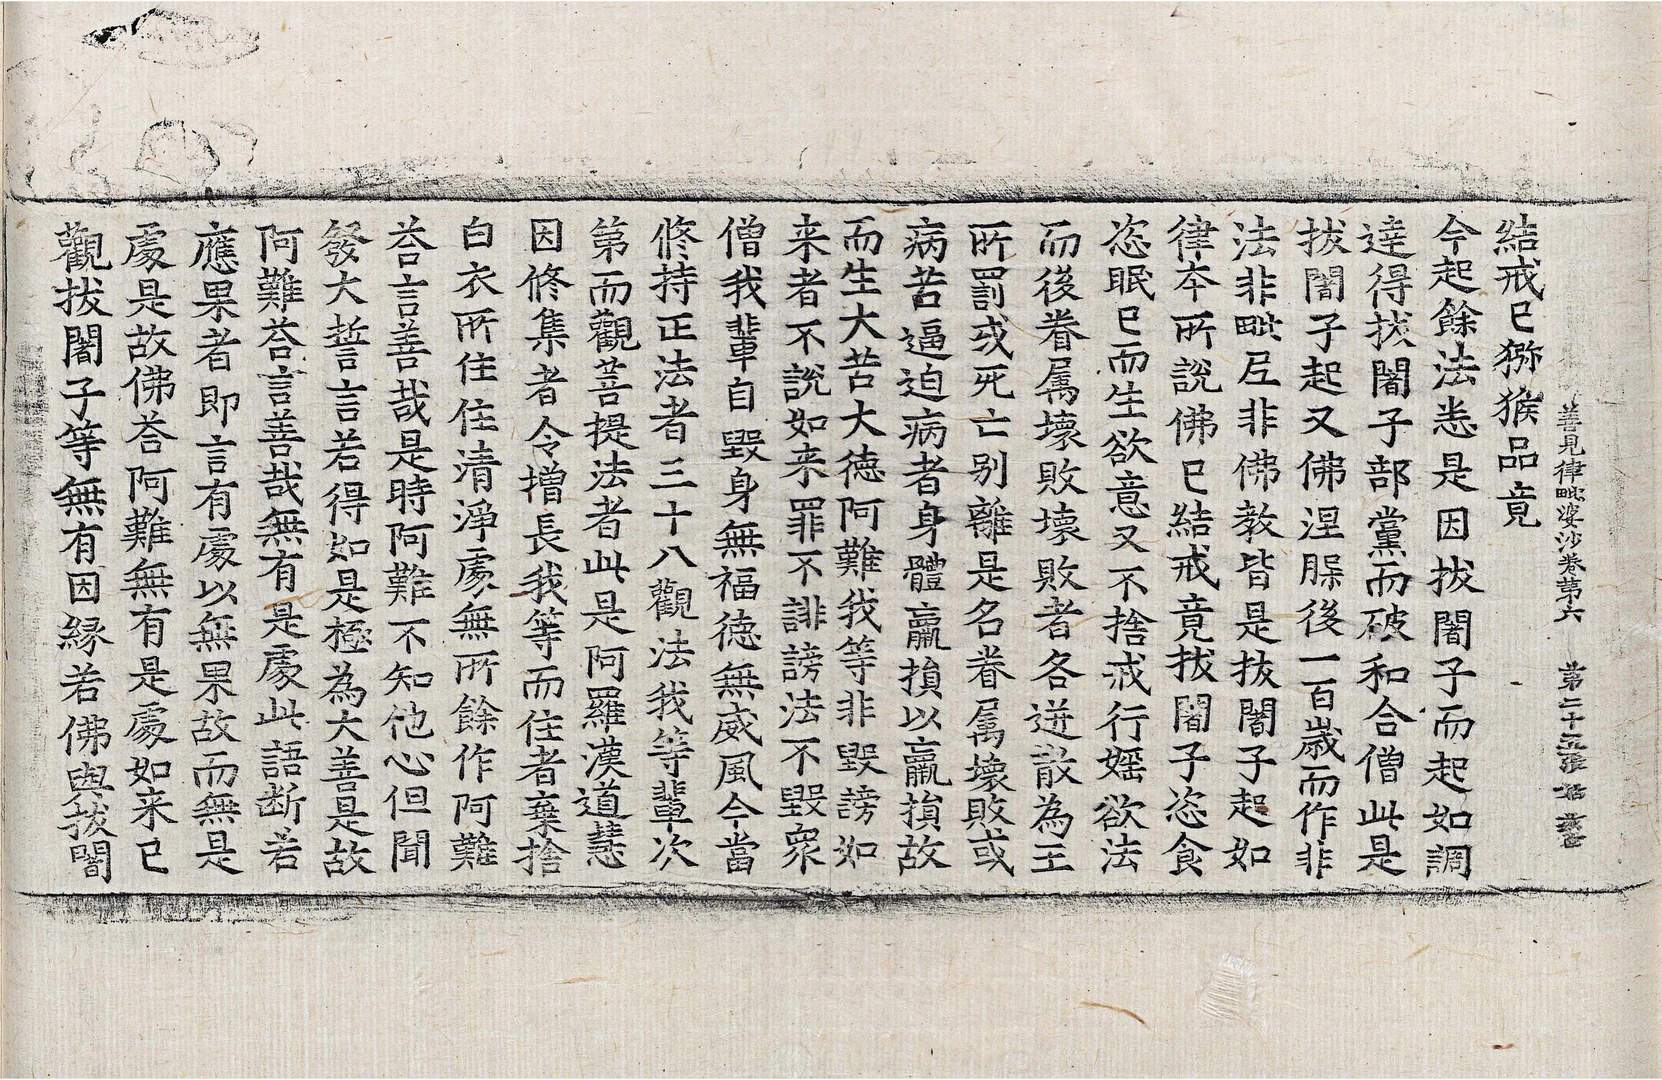 善見律毗婆沙卷第六 第二十五張
結戒已猕猴品竟
今起餘法悉是因拔闍子而起如調
達得拔闍子部黨而破和合僧此是
拔闍子起又佛涅槃後一百歲而作非
法非毗尼非佛教皆是拔闍子起如
律本所說佛已結戒竟拔闍子恣食
恣眠已而生欲意又不捨戒行婬欲法
而後眷属壞敗壞敗者各迸散為王
所罰或死亡别離是名眷属壞敗或
病苦逼迫病者身體羸損以羸損故
而生大苦大德阿難我等非毀謗如
来者不說如来罪不誹謗法不毀衆
僧我輩自毀身無福德無威風今當
修持正法者三十八觀法我等輩次
第而觀菩提法者此是阿羅漢道慧
因修集者令增長我等而住者棄捨
白衣所住住清淨處無所餘作阿難
荅言善哉是時阿難不知他心但聞
發大誓言若得如是極為大善是故
阿難荅言善哉無有是處此語断若
應果者即言有處以無果故而無是
處是故佛荅阿難無有是處如来已
觀拔闍子等無有因縁若佛與拔闍